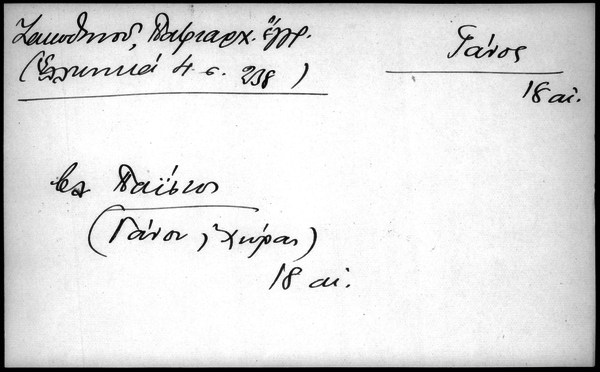 Ζακυθηνοῦ, Πατριαρχ. ἔγγρ.
(Ἑλληνικά 4 σ. 238)
Γάνος
18 αἰ.
βλ Παΐσιος
(Γάνου, Χώρας)
18 αἰ.